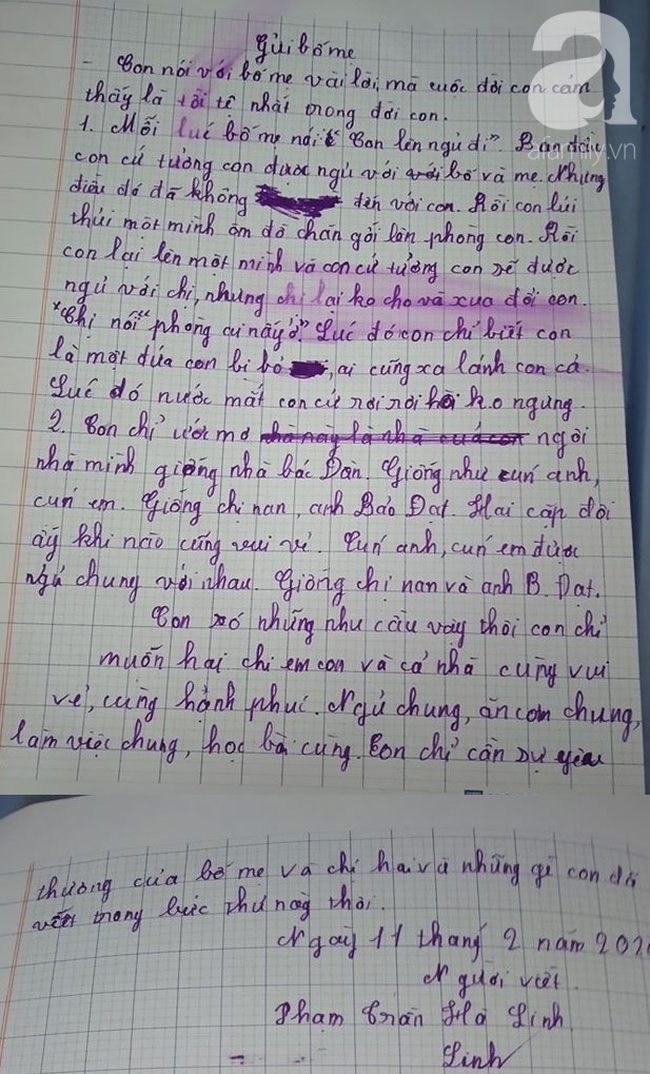 Gửi bố mẹ
- Con nói với bố mẹ vài lời, mà cuộc đời con cảm
thấy là tồi tệ nhất trong đời con.
1. Mỗi lúc bố mẹ nói "Con lên ngủ đi". Ban đầu
con cứ tưởng con được ngủ với với bố và mẹ. Nhưng
điều đó đã không đến với con. Rồi con lủi
thủi một mình ôm đồ chăn gối lên phòng con. Rồi
con lại lên một mình và con cứ tưởng con sẽ được
ngủ với chị, nhưng chị lại ko cho và xua đổi con.
*Chị nói "phòng cu nấy ở". Lúc đó con chỉ biết con
là một đứa con bị bỏ, ai cũng xa lánh con cả.
Lúc đó nước mắt con cứ rơi rơi hoài ko ngưng.
2. Con chỉ ước mơ nhà này là nhà của con ngôi
nhà mình giống nhà bác Đàn. Giống như cún anh,
cún em. Giống chị nan, anh Bảo Đạt. Hai cặp đôi
ấy khi nào cũng vui vẻ. Cún anh, cún em được
ngủ chung với nhau. Giống chị nan và anh B. Đạt.
Con có những nhu cầu vậy thôi con chỉ
muốn hai chị em con và cả nhà cùng vui
vẻ, cùng hành phúc. Ngủ chung, ăn cơm chung,
làm việc chung, học bài cùng. Con chỉ cần sự yêu
thương của bố mẹ và chị hai và những gì con đã
viết trong bức thư này thôi.
Ngày 11 tháng 2 năm 202
Người viết
Phạm Trần Hà Linh
Linh
a
afamily.vn